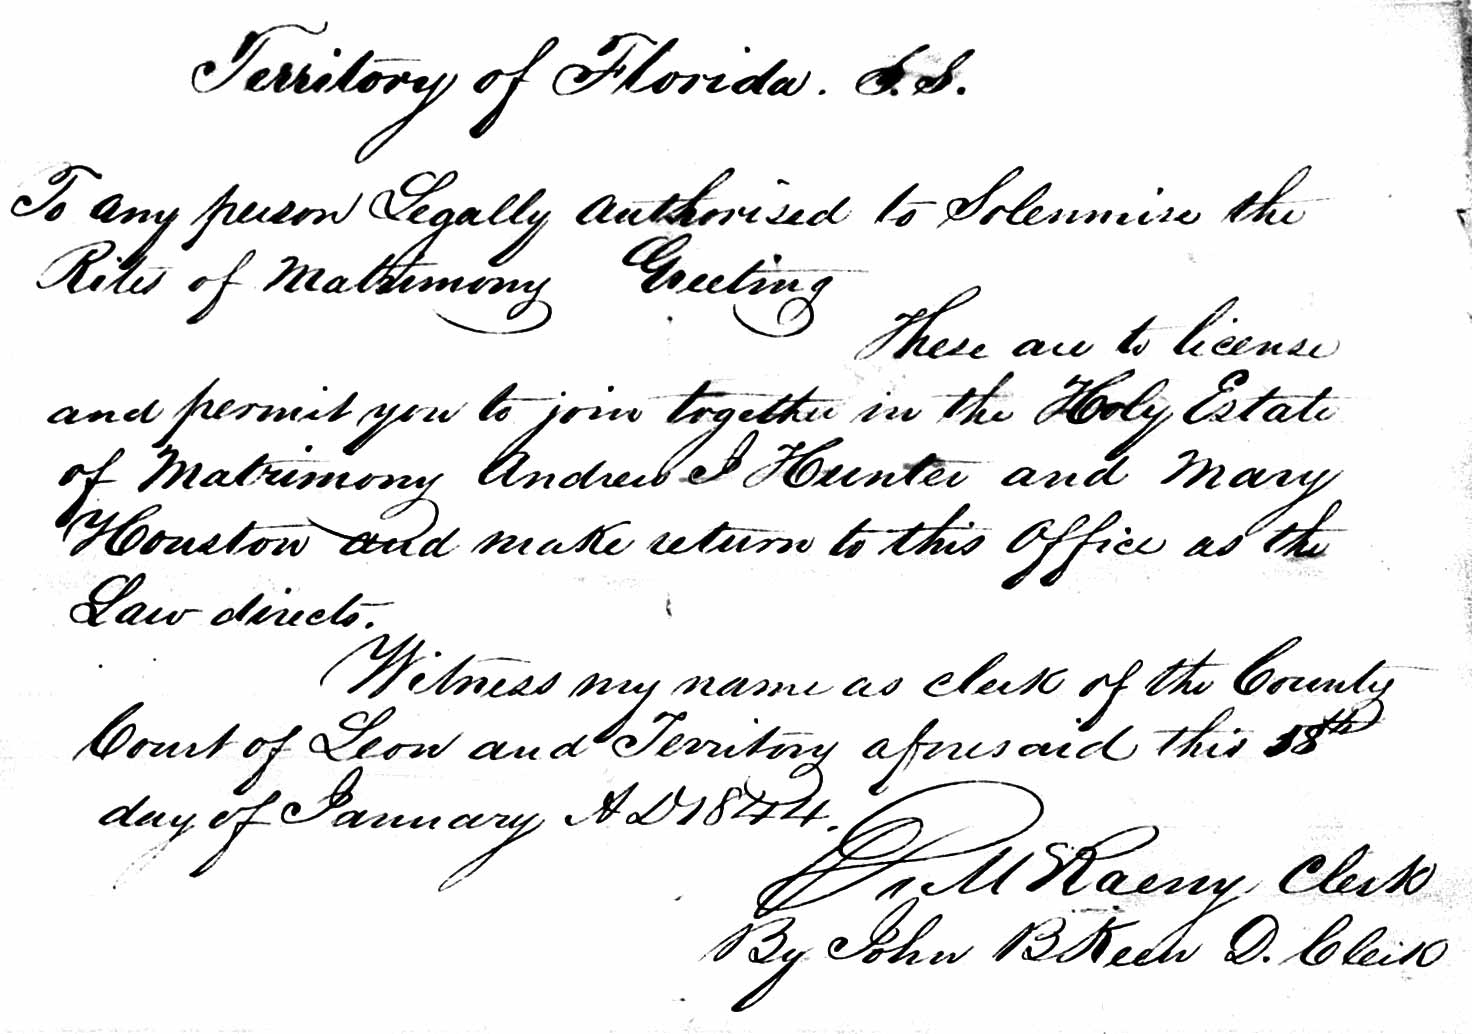 Territory of Florida. S.S.
To any person Legally authorised to Solemnise the
Rites of Matrimony Greeting
These are to license
and permit you to join together in the Holy Estate
of Matrimony Andrew J Hunter and Mary
Houston and make return to this Office as the
Law directs.
Witness my name as clerk of the County
Court of Leon and Territory aforesaid this 18th
day of January A D 1844.
McRaeny Clerk
By John B Keen D. Clerk